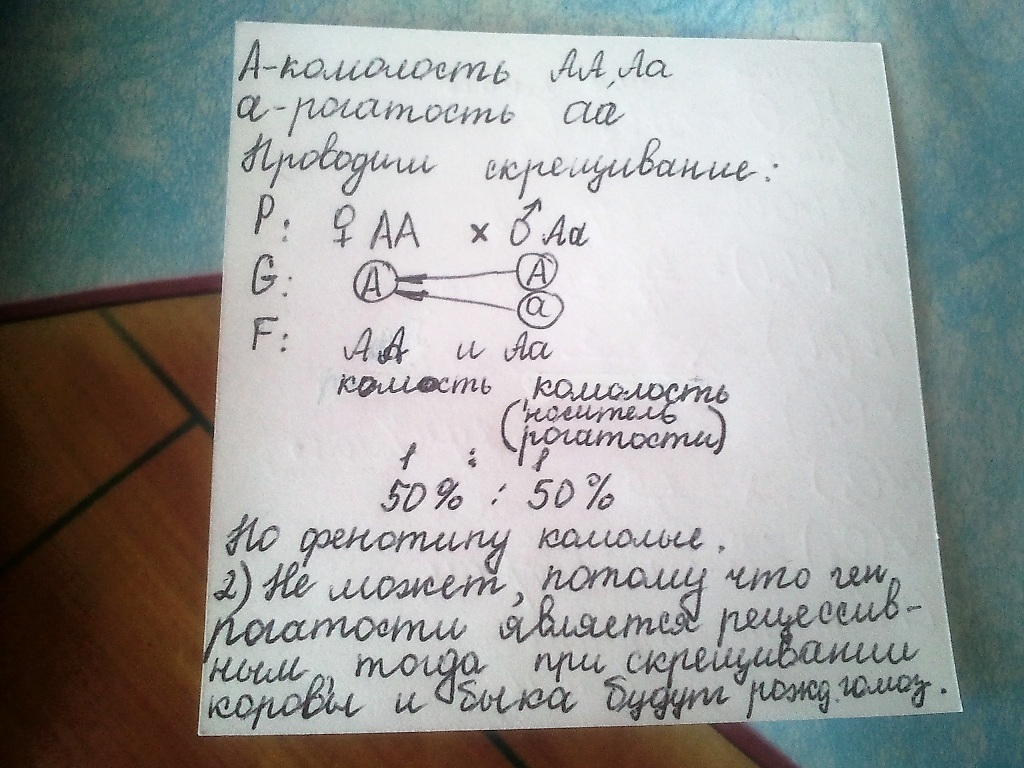 А-комолость АА, Аа
а-рогатость аа
Проводим скрещивание:
Р: ♀ АА × ♂ Аа
G: А А
а
F: АА и Аа
комость комолость
(носитель
рогатости)
1 : 1
50% : 50%
По фенотипу комолые.
2) Не может, потому что ген
рогатости является рецессив-
ным, тогда при скрещивании
коровы и быка будут рожд. гомоз.